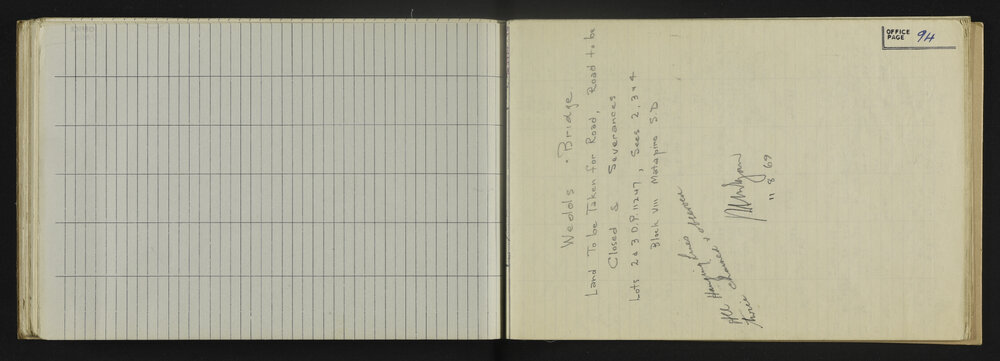 OFFICE
PAGE 94
Wedds Bridge
Land To be Taken for Road, Road to be
Closed & Severances
Lots 2 & 3 D.P. 11247, Secs 2, 3 & 4
Block VIII Matapiro S.D
All Hanging lines
twice chained &
11 8 69